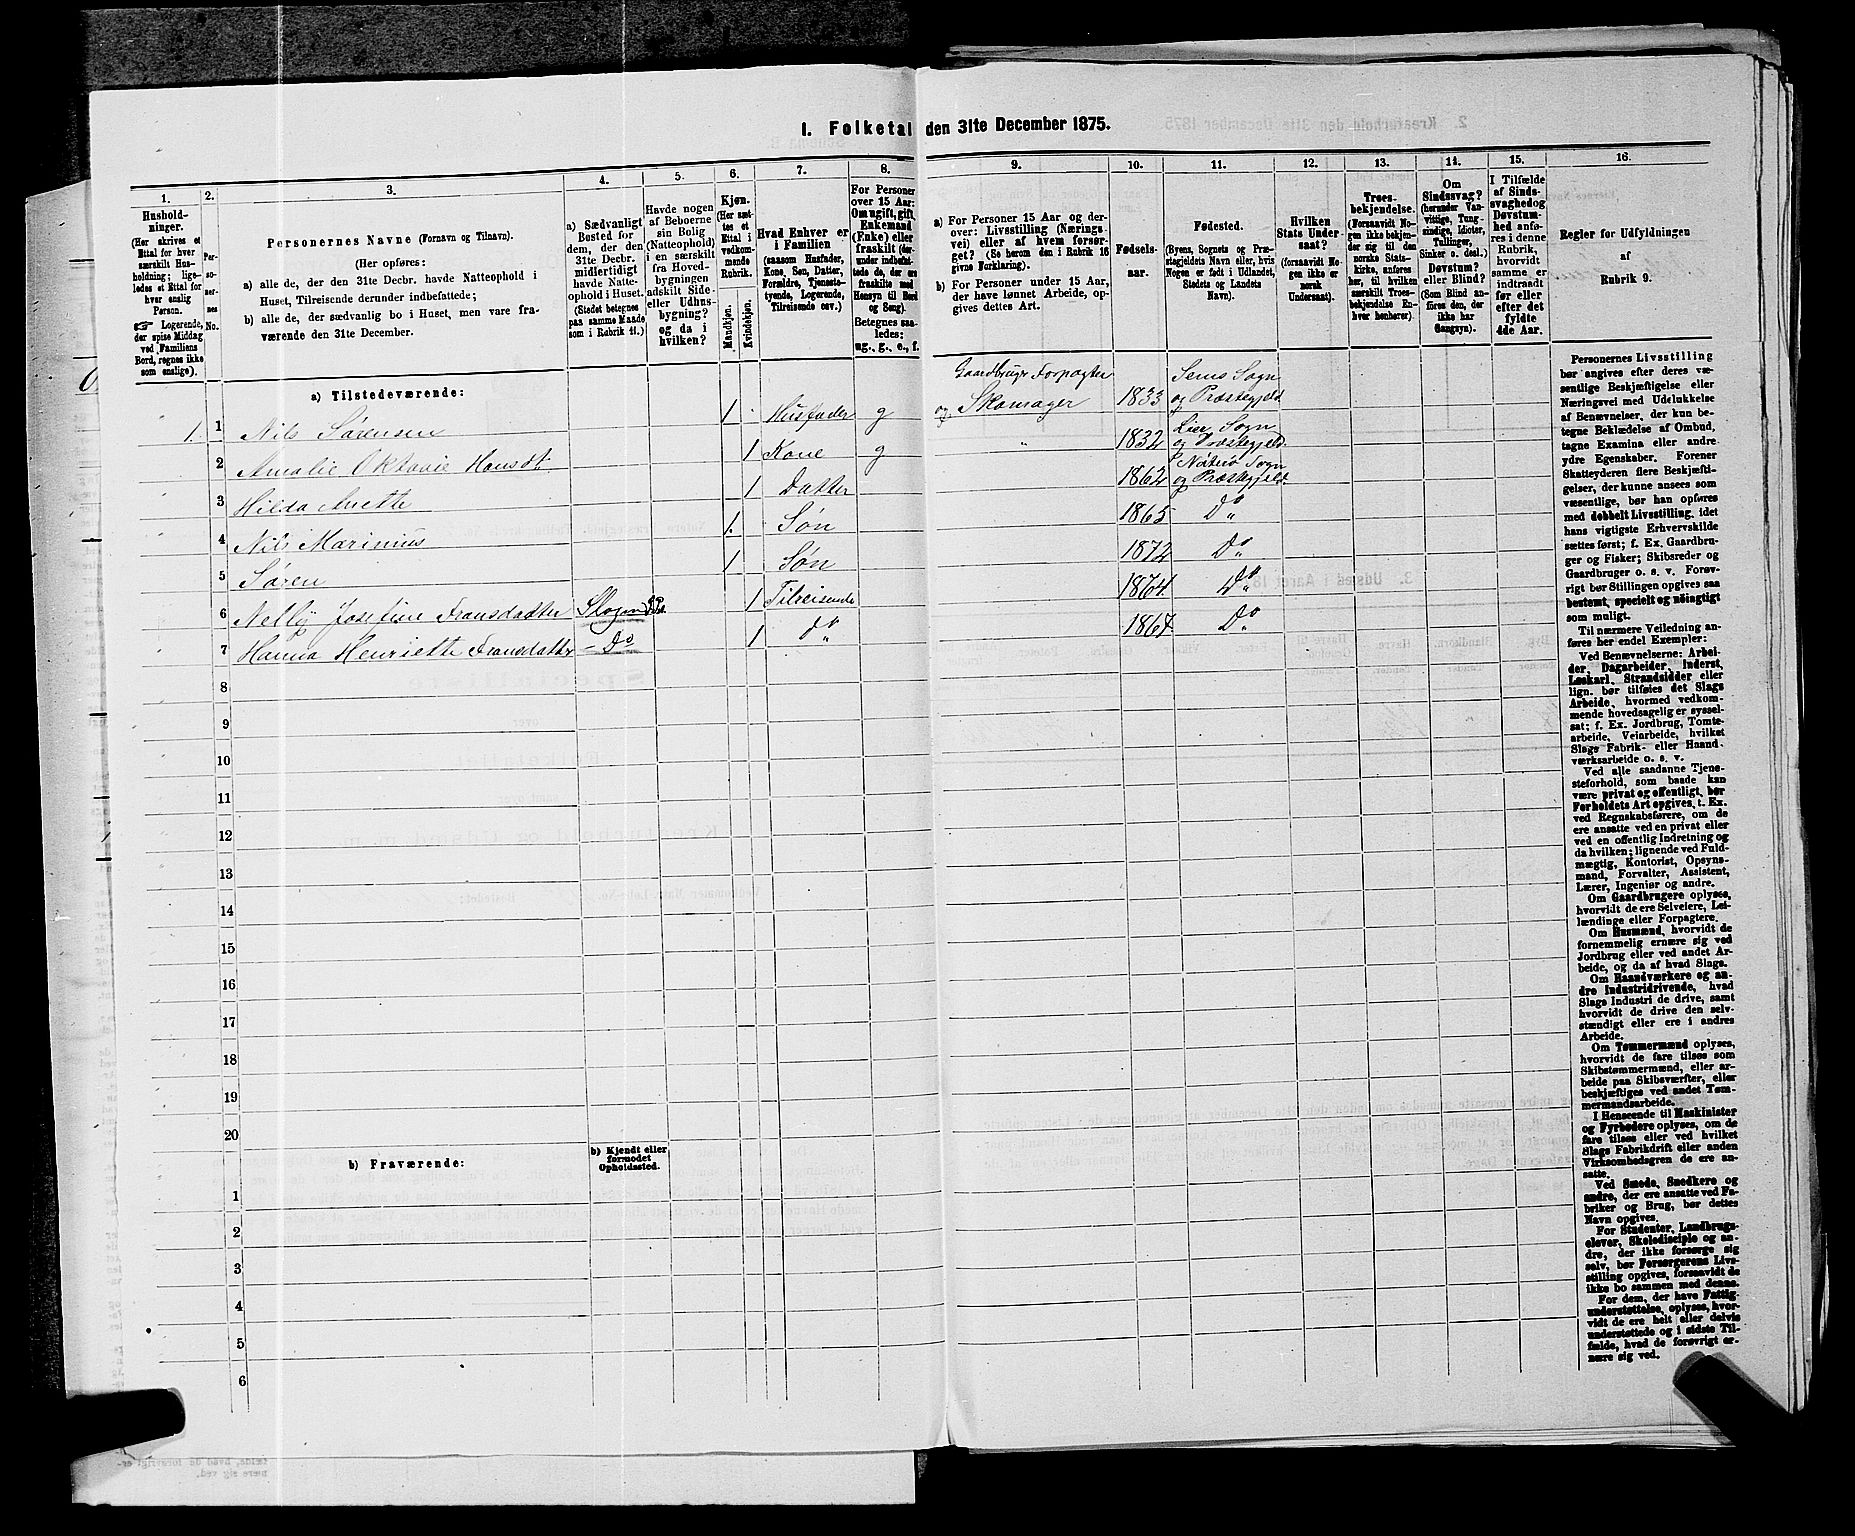 1. Folketal den 31te December 1875.
1.
2.
3.
4.
5.
6.
7.
8.
9.
10.
11.
12.
13.
14.
15.
16.
Hushold-
ninger.
(Her skrives et
Ettal for hver
særskilt Hus-
holdning; lige-
ledes et Ettal for
hver enslig
Person.
☞ Logerende,
der spise Middag
ved Familiens
Bord, regnes ikke
som enslige).
Per-
so-
ner-
nes
No.
Personernes Navne (Fornavn og Tilnavn).
(Her opføres:
a) alle de, der den 31te Decbr. havde Natteophold i
Huset, Tilreisende derunder indbefattede;
b) alle de, der sædvanlig bo i Huset, men vare fra-
værende den 31te December.
a) Sædvanligt
Bosted for
dem, der den
31te Decbr.
midlertidigt
havde Natte-
ophold i Huset.
(Stedet betegnes
paa samme Maade
som i Rubrik 11.)
Havde nogen
af Beboerne
sin Bolig
(Natteophold)
i en særskilt
fra Hoved-
bygningen
adskilt Side-
eller Udhus-
bygning?
og da i
hvilken?
Kjøn.
(Her sæt-
tes et
Ettal i
vedkom-
mende
Rubrik.
Mandkjøn.
Kvindekjøn.
Hvad Enhver er
i Familien
(saasom Husfader,
Kone, Søn, Datter,
Forældre, Tjeneste-
tyende, Logerende,
Tilreisende osv.)
For Personer
over 15 Aar:
Om ugift, gift,
Enkemand
(Enke) eller
fraskilt (der-
under indbefat-
tede de, der ere
fraskilte med
Hensyn til Bord
og Seng).
Betegnes saa-
ledes:
ug., g., e., f.
a) For Personer 15 Aar og der-
over: Livsstilling (Nærings-
vei) eller af hvem forsør-
get? (Se herom den i Rubrik 16
givne Forklaring).
b) For Personer under 15 Aar,
der have lønnet Arbeide, op-
gives dettes Art.
Fødsels-
aar.
Fødested.
(Byens, Sognets og Præ-
stegjeldets Navn eller, hvis
Nogen er født i Udlandet,
Stedets og Landets
Navn).
Hvilken
Stats Under-
saat?
(forsaavidt No-
gen ikke er
norsk
Undersaat).
Troes-
bekjendelse.
(Forsaavidt No-
gen ikke bekjen-
der sig til den
norske Stats-
kirke, anføres
her, til hvilken
særskilt Troes-
bekjendelse En-
hver henhører).
Om
Sindssvag?
(herunder Van-
vittige, Tung-
sindige, Idioter,
Tullinger,
Sinker o. desl.)
Døvstum?
eller Blind?
(Som Blind an-
føres den, der
ikke har
Gangsyn).
I Tilfælde
af Sinds-
svaghed og
Døvstum-
hed anfø-
res i denne
Rubrik,
hvorvidt
samme er
indtraadt
før eller
efter det
fyldte
4de Aar.
Regler for Udfyldningen
af
Rubrik 9.
a) Tilstedeværende:
1. 1 Nils Sørensen 1 Husfader g Gaardbruger Forpagter og Skomager 1833 Sems Sogn og Præstegjeld
2 Amalie Oktavie Hansdt. 1 Kone g " 1832 Lier Sogn og Præstegjeld
3 Hilda Anette 1 Datter 1862 Nøterø Sogn og Præstegjeld
4 Nils Marinius 1 Søn 1865 Do
5 Søren 1 Søn 1872 Do
6 Nelly Josefine Fransdatter 1 Tilreisende 1864 Do
7 Hanna Henriette Fransdatter Do 1 do 1867 Do
8
9
10
11
12
13
14
15
16
17
18
19
20
b) Fraværende:
b) Kjendt eller
formodet
Opholdssted.
1
2
3
4
5
6
Personernes Livsstilling
bør angives efter deres væ-
sentlige Beskjæftigelse eller
Næringsvei med Udelukkelse
af Benævnelser, der kun be-
tegne Beklædelse af Ombud,
tagne Examina eller andre
ydre Egenskaber. Forener
Skatteyderen flere Beskjæfti-
gelser, der kunne ansees som
væsentlige, bør han opføres
med dobbelt Livsstilling, idet
hans vigtigste Erhvervskilde
sættes først; f. Ex. Gaardbru-
ger og Fisker; Skibsreder og
Gaardbruger o. s. v. Forøv-
rigt bør Stillingen opgives saa
bestemt, specielt og nöiagtigt
som muligt.
Til nærmere Veiledning an-
føres her endel Exempler:
Ved Benævnelserne: Arbei-
der, Dagarbeider, Inderst,
Løskarl, Strandsidder eller
lign. bør tilføies det Slags
Arbeide, hvormed vedkom-
mende hovedsagelig er syssel-
sat; f. Ex. Jordbrug, Tomte-
arbeide, Veiarbeide, hvilket
Slags Fabrik- eller Haand-
værksarbeide o. s. v.
Ved alle saadanne Tjene-
steforhold, som baade kan
være privat og offentligt, bør
Forholdets Art opgives, t. Ex.
ved Regnskabsførere, om de
ere ansatte ved en privat eller
ved en offentlig Indretning og
da hvilken; lignende ved Fuld-
mægtig, Kontorist, Opsyns-
mand, Forvalter, Assistent,
Lærer, Ingeniør og andre.
Om Gaardbrugere oplyses,
hvorvidt de ere Selveiere, Lei-
lændinge eller Forpagtere.
Om Husmænd, hvorvidt de
fornemmelig ernære sig ved
Jordbrug eller ved andet Ar-
beide, og da af hvad Slags.
Om Haandværkere og an-
dre Industridrivende, hvad
Slags Industri de drive, samt
hvorvidt de drive den selv-
stændigt eller ere i andres
Arbeide.
Om Tømmermænd oplyses,
hvorvidt de fare tilsøs som
Skibstømmermænd, eller ar-
beide paa Skibsværfter, eller
beskjæftiges ved andet Tøm-
mermandsarbeide.
I Henseende til Maskinister
og Fyrbødere oplyses, om de
fare tilsøs eller ved hvilket
Slags Fabrikdrift eller anden
Virksomhedsgren de ere an-
satte.
Ved Smede, Snedkere og
andre, der ere ansatte ved Fa-
briker og Brug, bør dettes
Navn opgives.
For Studenter, Landbrugs-
elever, Skoledisciple og an-
dre, der ikke forsørge sig
selv, bør Forsørgerens Livs-
stilling opgives, forsaavidt de
ikke bo sammen med denne.
For dem, der have Fattig-
understøttelse, oplyses, hvor-
vidt de ere helt eller delvis
understøttede og i sidste Til-
fælde, hvad de forøvrigt er-
nære sig ved.